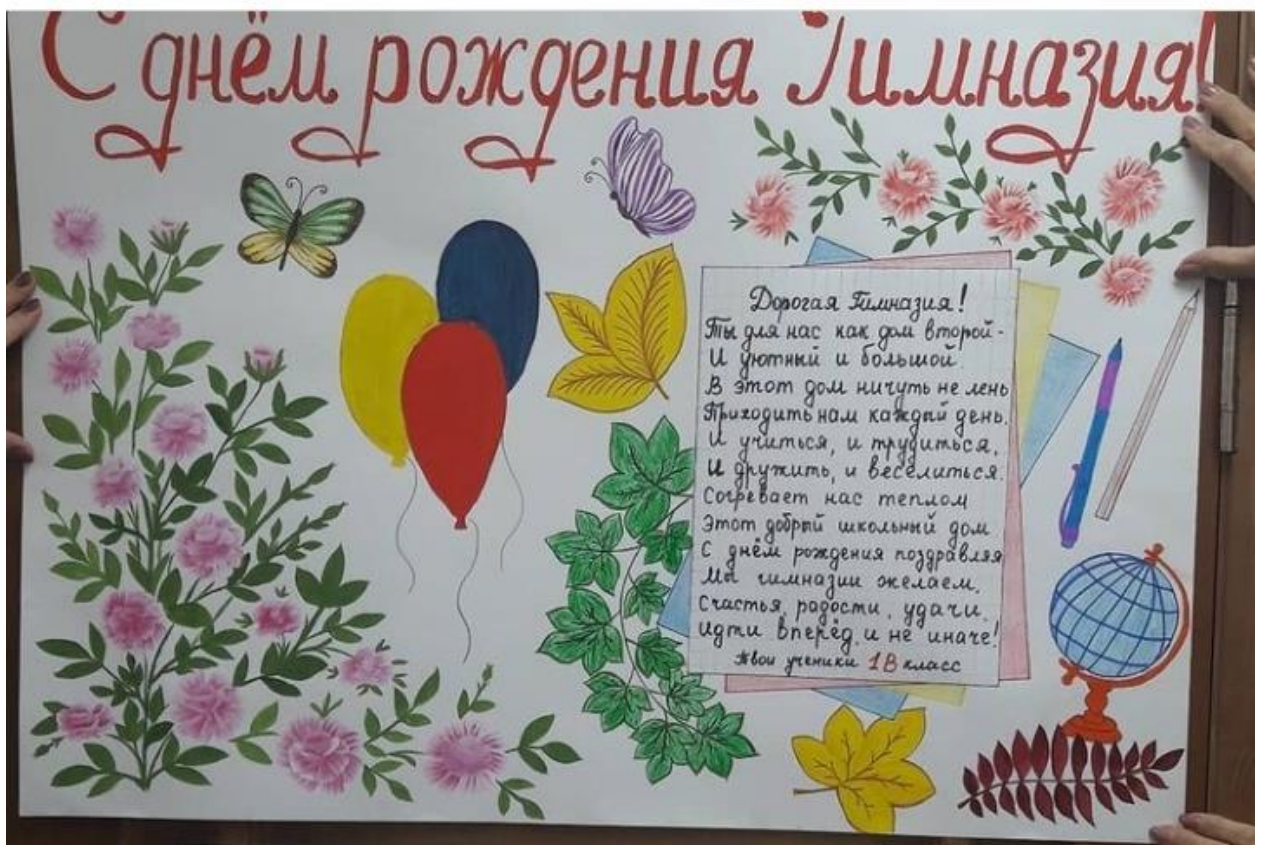 С днём рождения Гимназия!
Дорогая Гимназия!
Ты для нас как дом второй-
И уютный и большой.
В этот дом ничуть не лень
Приходить нам каждый день.
И учиться, и трудиться,
И дружить, и веселиться.
Согревает нас теплом
Этот добрый школьный дом
С днём рождения поздравляя
Мы гимназии желаем,
Счастья, радости, удачи,
Идти вперёд, и не иначе!
Твои ученики 1В класс